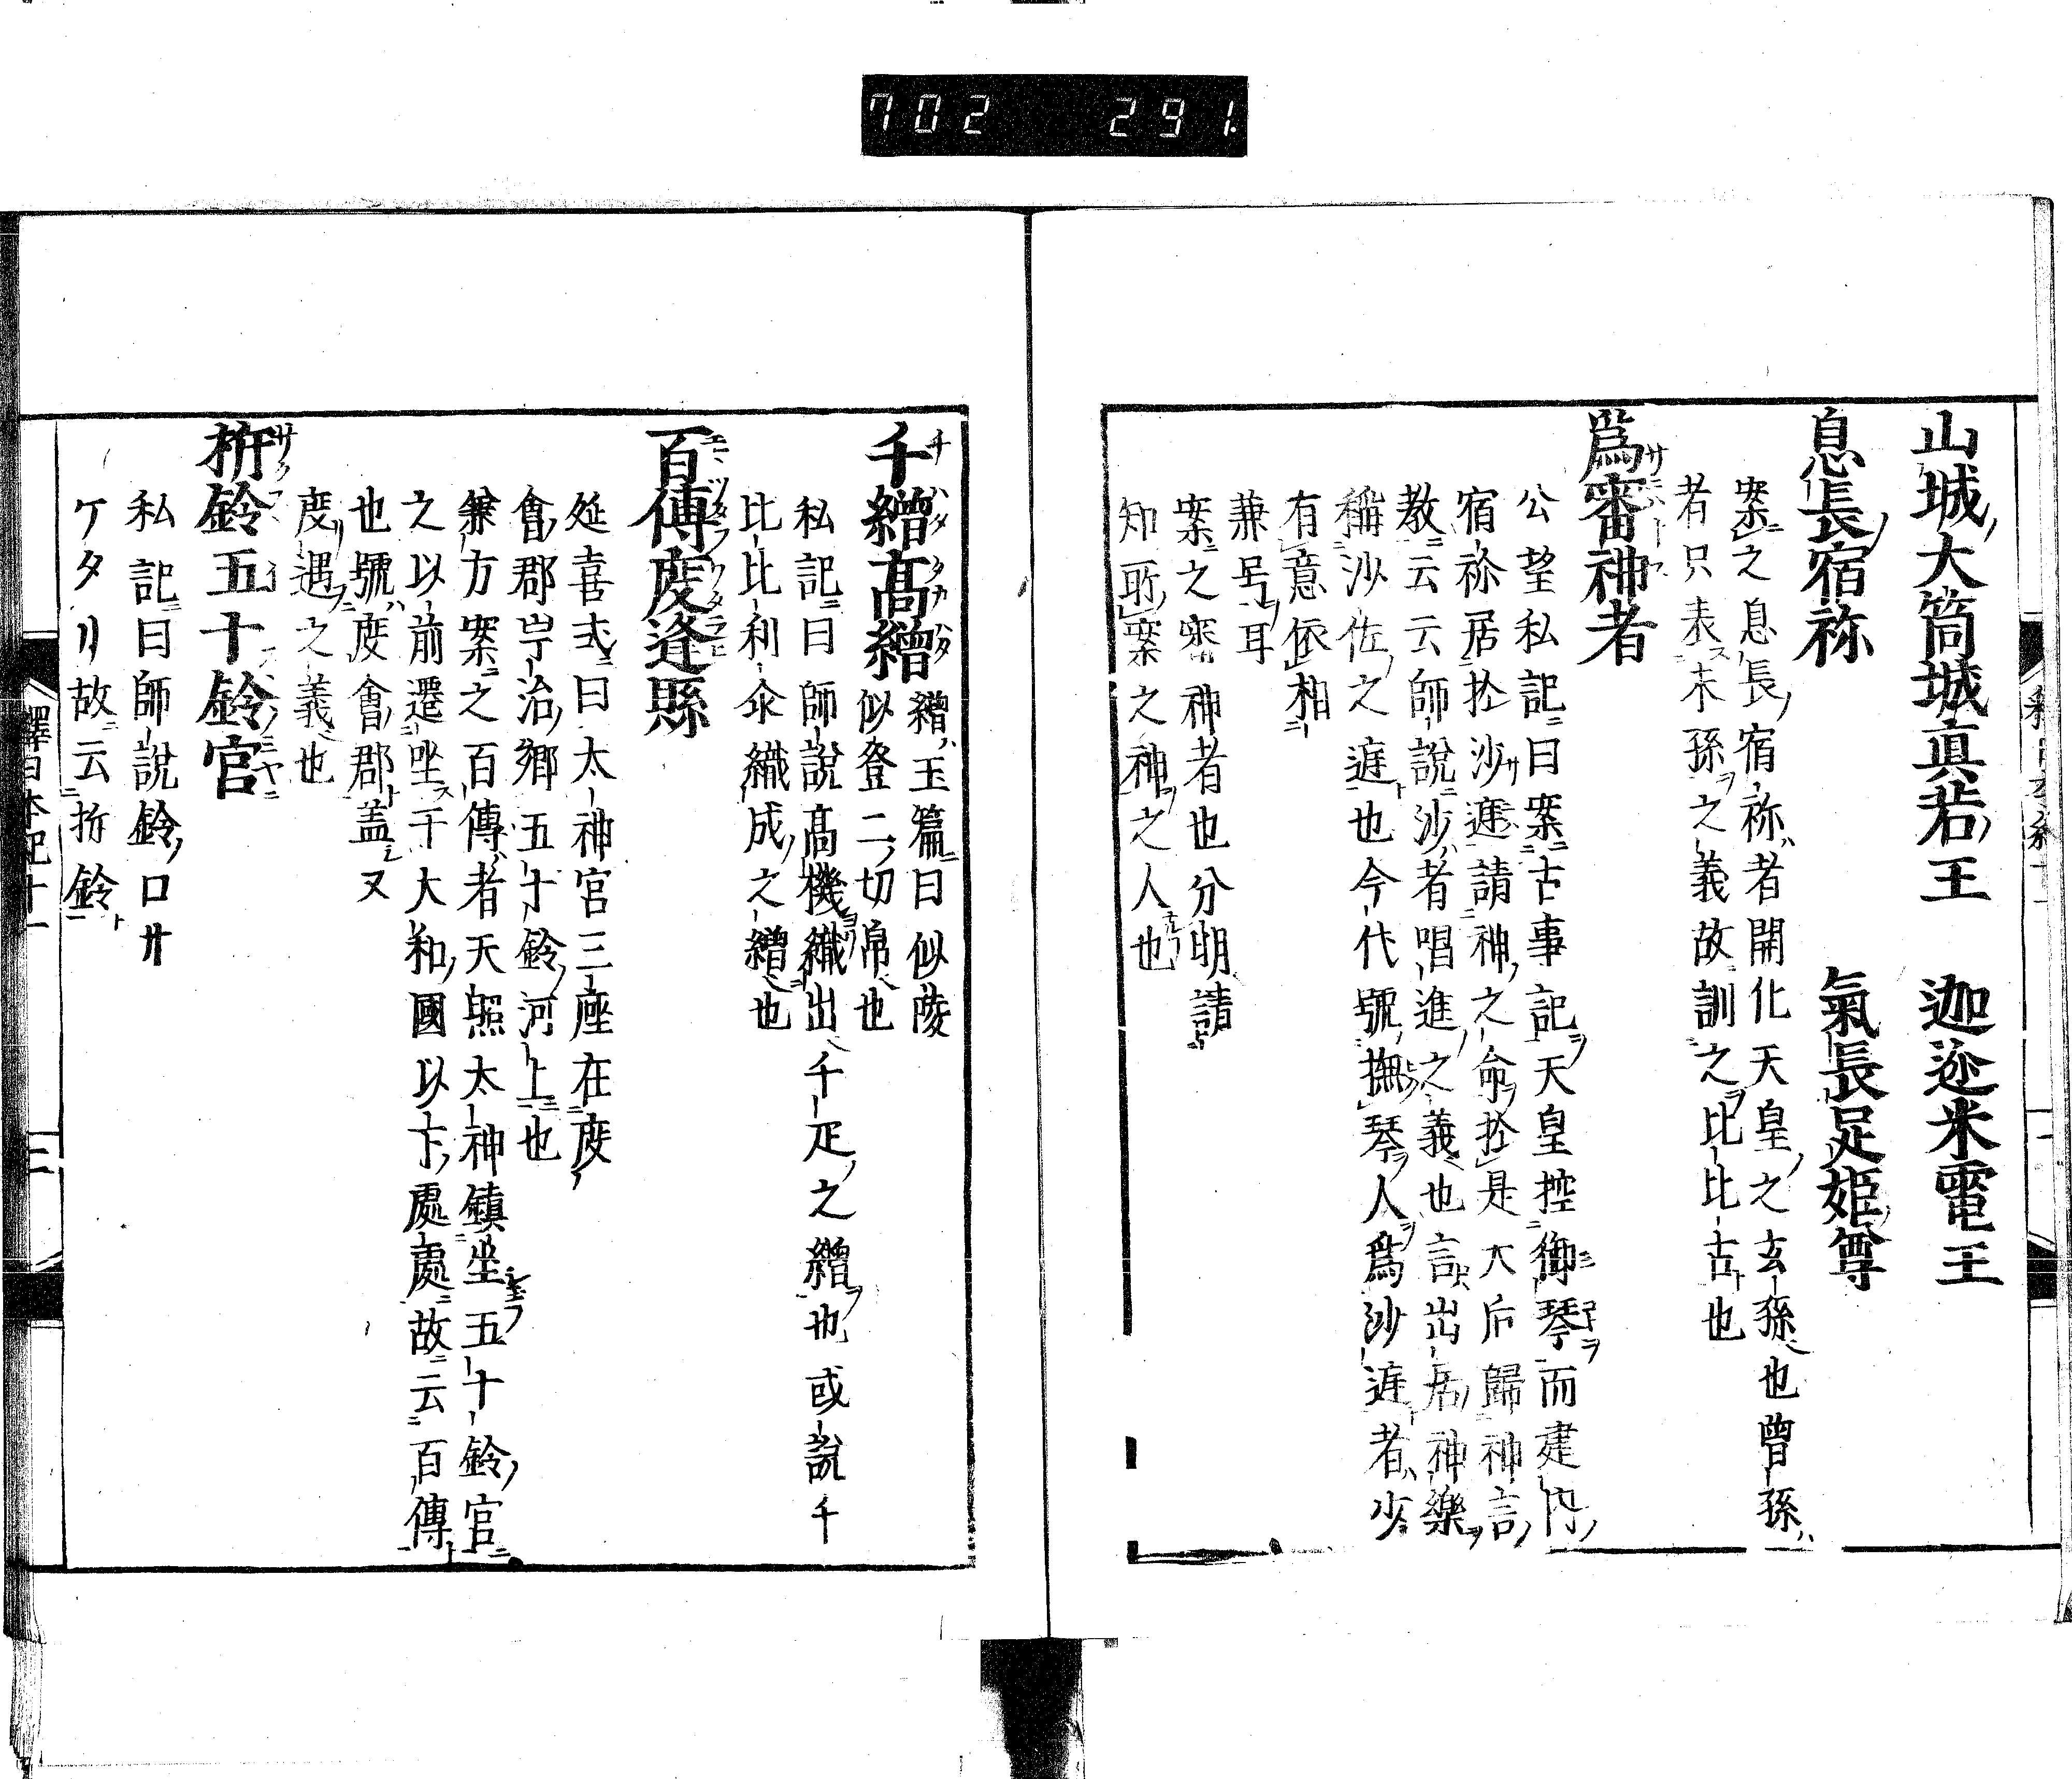 702 291.
山城大筒城真若王 迦迩米雷王
息長宿祢 氣長足姫尊
案之息長宿祢者開化天皇之玄孫也曽孫
者只表末孫之義故訓之比比古也
爲審神者
公望私記曰案古事記天皇控御琴而建内
宿祢居扵沙遅請神之命扵是大后歸神言
教云云師說沙者唱進之義也言出居神樂
稱沙佐之遅也今代號撫琴人爲沙遅者少
有意依相
兼号耳
案之審神者也分明請
知所案之神之人也
千繒髙繒 繒玉篇曰似陵
似登二切帛也
私記曰師說髙機織出千疋之繒也或說千
比比利伞織成之繒也
百傳度逢縣
延喜式曰太神宮三座在度
會郡宇治郷五十鈴河上也
兼方案之百傳者天照太神鎮坐五十鈴宮
之以前遷坐于大和國以下處處故云百傳
也號度會郡盖又
度遇之義也
析鈴五十鈴宮
私記曰師說鈴口サ
ケタリ故云拆鈴
釋日本紀十一 三